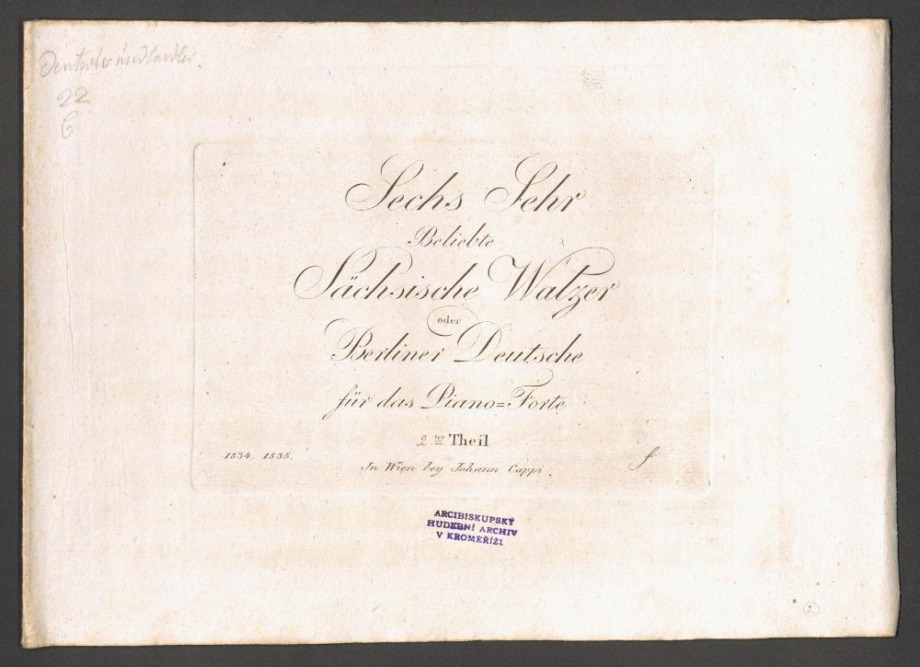 Deutsche und Landler.
22
6
Sechs Sehr
Beliebte
Sächsische Walzer
oder
Berliner Deutsche
für das Piano=Forte
2ter Theil
1534. 1535.
In Wien bey Johann Cappi.
f
ARCIBISKUPSKÝ
HUDEBNÍ ARCHIV
V KROMĚŘÍŽI
2